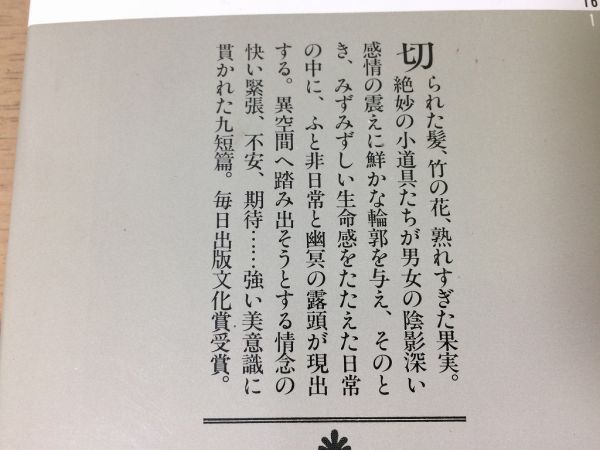 切られた髪、竹の花、熟れすぎた果実。
絶妙の小道具たちが男女の陰影深い
感情の震えに鮮かな輪郭を与え、そのと
き、みずみずしい生命感をたたえた日常
の中に、ふと非日常と幽冥の露頭が現出
する。異空間へ踏み出そうとする情念の
快い緊張、不安、期待……強い美意識に
貫かれた九短篇。毎日出版文化賞受賞。
16